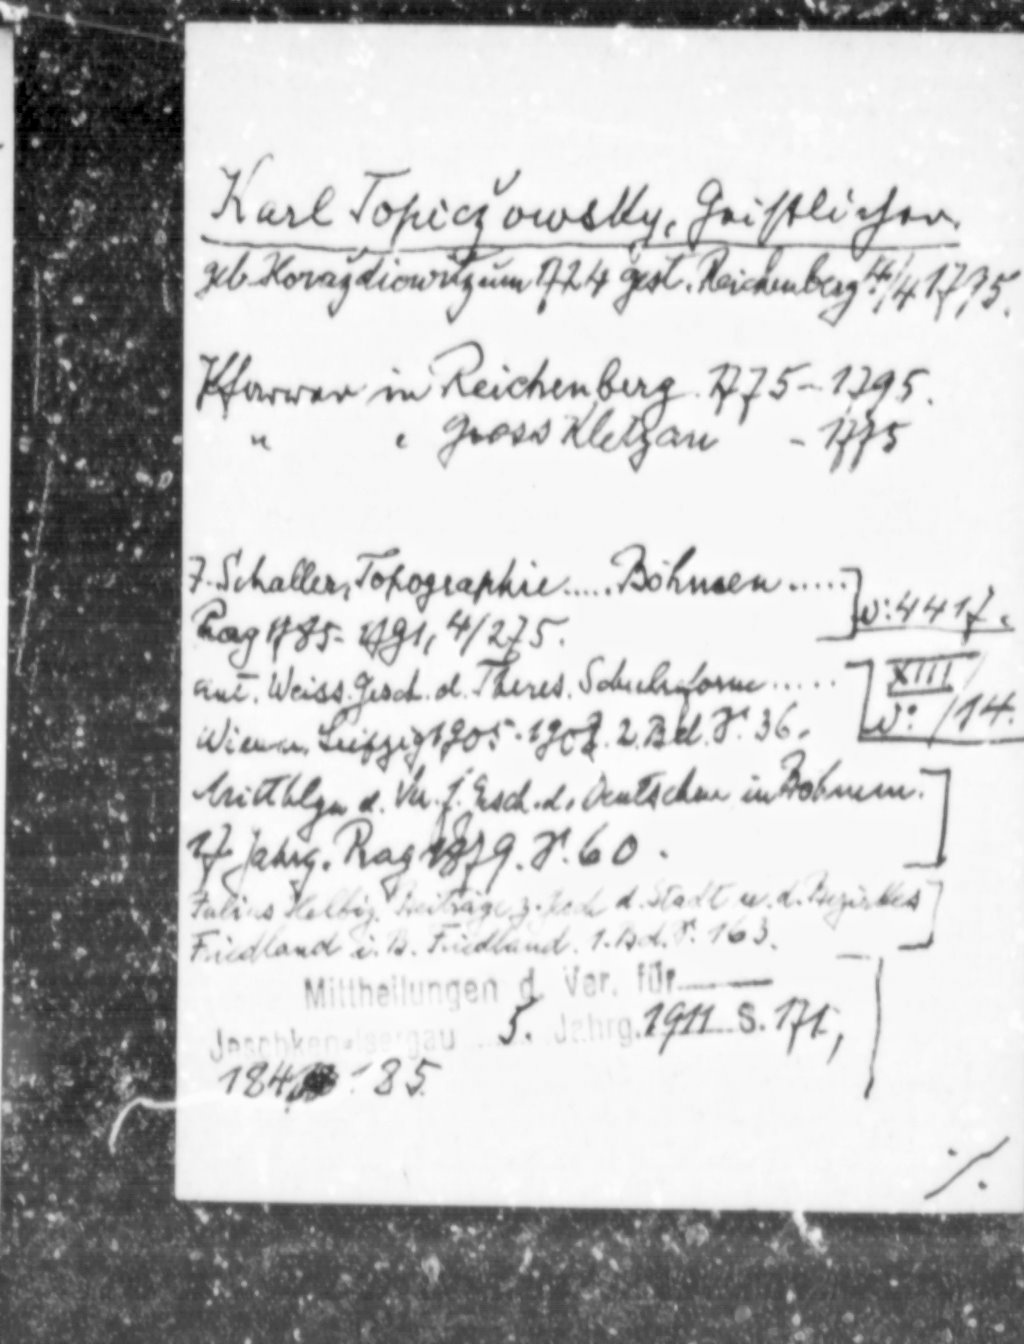 Karl Topiczowsky, Geistlicher.
geb. Horaždiowitz um 1724 gest. Reichenberg 4/4 1795.
Pfarrer in Reichenberg 1775-1795.
" " Gross Kletzan - 1775
J. Schaller, Topographie..... Böhmen .....
v: 4417.
Prag 1785-1791, 4/275.
Ant. Weiss. Gesch. d. Theres. Schulreform ......
XIII/
v: /14.
Wien u. Leipzig 1905-1908. 2. Bd. S. 36.
Mitthlgn d. Ver. f. Gesch. d. Deutschen in Böhmen.
17 Jahrg. Prag 1879. S. 60.
Julius Helbig. Beiträge z. Gesch d. Stadt u. d. Bezirkes
Friedland i. B. Friedland. 1. Bd. S. 163.
Mittheilungen d. Ver. für
Jeschken-Isergau 5. Jahrg. 1911 S. 171,
184 - 85.